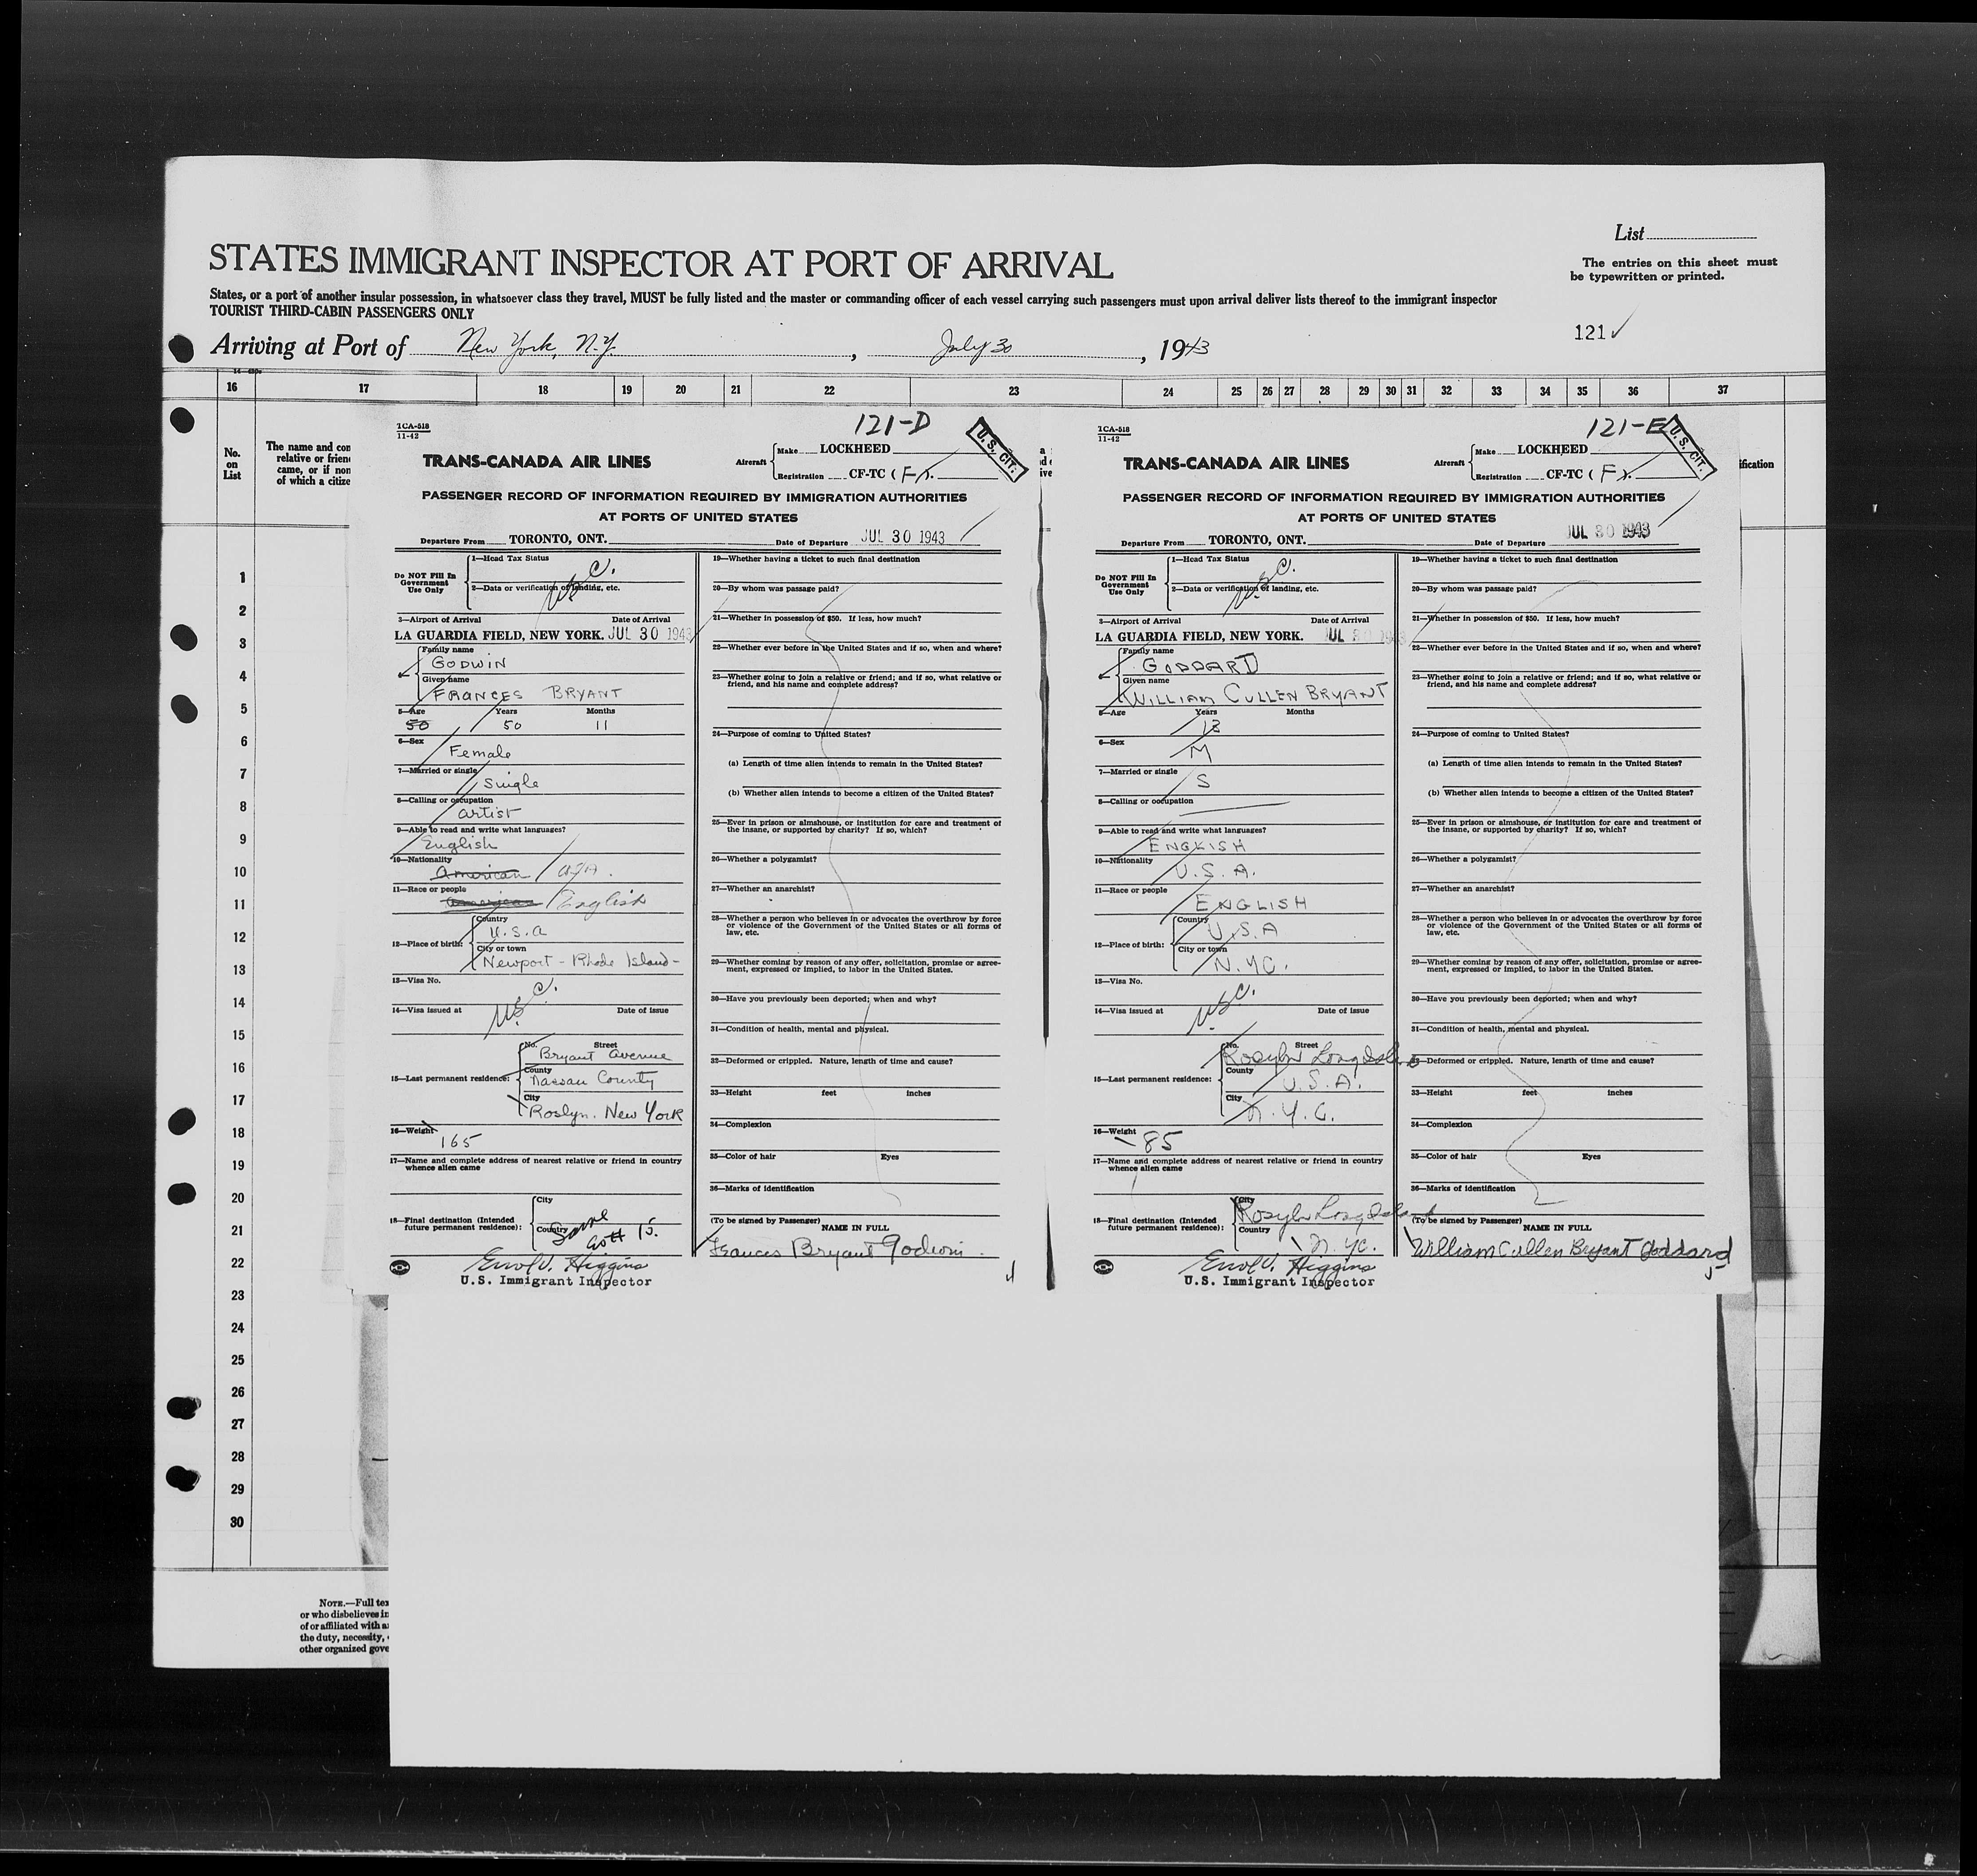 List
STATES IMMIGRANT INSPECTOR AT PORT OF ARRIVAL
The entries on this sheet must
be typewritten or printed.
States, or a port of another insular possession, in whatsoever class they travel, MUST be fully listed and the master or commanding officer of each vessel carrying such passengers must upon arrival deliver lists thereof to the immigrant inspector
TOURIST THIRD-CABIN PASSENGERS ONLY
121
Arriving at Port of New York, N.Y. , July 30 , 1943
16 17 18 19 20 21 22 23 24 25 26 27 28 29 30 31 32 33 34 35 36 37
No.
on
List
The name and con
relative or frien
came, or if non
of which a citize
ification
1
2
3
4
5
6
7
8
9
10
11
12
13
14
15
16
17
18
19
20
21
22
23
24
25
26
27
28
29
30
TCA-518
11-42
121-D
U.S. CIT.
TRANS-CANADA AIR LINES
Aircraft
Make LOCKHEED
Registration CF-TC (F).
PASSENGER RECORD OF INFORMATION REQUIRED BY IMMIGRATION AUTHORITIES
AT PORTS OF UNITED STATES
Departure From TORONTO, ONT. Date of Departure JUL 30 1943
Do NOT Fill In
Government
Use Only
1—Head Tax Status
2—Data or verification of landing, etc.
USC.
3—Airport of Arrival Date of Arrival
LA GUARDIA FIELD, NEW YORK. JUL 30 1943
Family name
GODWIN
Given name
FRANCES BRYANT
5—Age Years Months
50 50 11
6—Sex
Female
7—Married or single
Single
8—Calling or occupation
artist
9—Able to read and write what languages?
English
10—Nationality
American / USA.
11—Race or people
American / English
12—Place of birth:
Country
U.S.A
City or town
Newport - Rhode Island -
13—Visa No.
USC.
14—Visa issued at Date of issue
15—Last permanent residence:
No. Street
Bryant Avenue
County
Nassau County
City
Roslyn. New York
16—Weight
165
17—Name and complete address of nearest relative or friend in country
whence alien came
18—Final destination (Intended
future permanent residence):
City
Country
Same
15.
Errol V. Higgins
U.S. Immigrant Inspector
19—Whether having a ticket to such final destination
20—By whom was passage paid?
21—Whether in possession of $50. If less, how much?
22—Whether ever before in the United States and if so, when and where?
23—Whether going to join a relative or friend; and if so, what relative or
friend, and his name and complete address?
24—Purpose of coming to United States?
(a) Length of time alien intends to remain in the United States?
(b) Whether alien intends to become a citizen of the United States?
25—Ever in prison or almshouse, or institution for care and treatment of
the insane, or supported by charity? If so, which?
26—Whether a polygamist?
27—Whether an anarchist?
28—Whether a person who believes in or advocates the overthrow by force
or violence of the Government of the United States or all forms of
law, etc.
29—Whether coming by reason of any offer, solicitation, promise or agree-
ment, expressed or implied, to labor in the United States.
30—Have you previously been deported; when and why?
31—Condition of health, mental and physical.
32—Deformed or crippled. Nature, length of time and cause?
33—Height feet inches
34—Complexion
35—Color of hair Eyes
36—Marks of identification
(To be signed by Passenger)
NAME IN FULL
Frances Bryant Godwin.
TCA-518
11-42
121-E
U.S. CIT.
TRANS-CANADA AIR LINES
Aircraft
Make LOCKHEED
Registration CF-TC (F).
PASSENGER RECORD OF INFORMATION REQUIRED BY IMMIGRATION AUTHORITIES
AT PORTS OF UNITED STATES
Departure From TORONTO, ONT. Date of Departure JUL 30 1943
Do NOT Fill In
Government
Use Only
1—Head Tax Status
2—Data or verification of landing, etc.
USC.
3—Airport of Arrival Date of Arrival
LA GUARDIA FIELD, NEW YORK. JUL 30 1943
Family name
GODDARD
Given name
WILLIAM CULLEN BRYANT
5—Age Years Months
13
6—Sex
M
7—Married or single
S
8—Calling or occupation
9—Able to read and write what languages?
ENGLISH
10—Nationality
U.S.A.
11—Race or people
ENGLISH
12—Place of birth:
Country
U.S.A
City or town
N.YC.
13—Visa No.
USC.
14—Visa issued at Date of issue
15—Last permanent residence:
No. Street
Roslyn Long Island
County
U.S.A.
City
N.Y.C.
16—Weight
85
17—Name and complete address of nearest relative or friend in country
whence alien came
18—Final destination (Intended
future permanent residence):
City
Roslyn Long Island
Country
N.YC.
Errol V. Higgins
U.S. Immigrant Inspector
19—Whether having a ticket to such final destination
20—By whom was passage paid?
21—Whether in possession of $50. If less, how much?
22—Whether ever before in the United States and if so, when and where?
23—Whether going to join a relative or friend; and if so, what relative or
friend, and his name and complete address?
24—Purpose of coming to United States?
(a) Length of time alien intends to remain in the United States?
(b) Whether alien intends to become a citizen of the United States?
25—Ever in prison or almshouse, or institution for care and treatment of
the insane, or supported by charity? If so, which?
26—Whether a polygamist?
27—Whether an anarchist?
28—Whether a person who believes in or advocates the overthrow by force
or violence of the Government of the United States or all forms of
law, etc.
29—Whether coming by reason of any offer, solicitation, promise or agree-
ment, expressed or implied, to labor in the United States.
30—Have you previously been deported; when and why?
31—Condition of health, mental and physical.
32—Deformed or crippled. Nature, length of time and cause?
33—Height feet inches
34—Complexion
35—Color of hair Eyes
36—Marks of identification
(To be signed by Passenger)
NAME IN FULL
William Cullen Bryant Goddard
NOTE.—Full te
or who disbelieves in
of or affiliated with a
the duty, necessity,
other organized gove